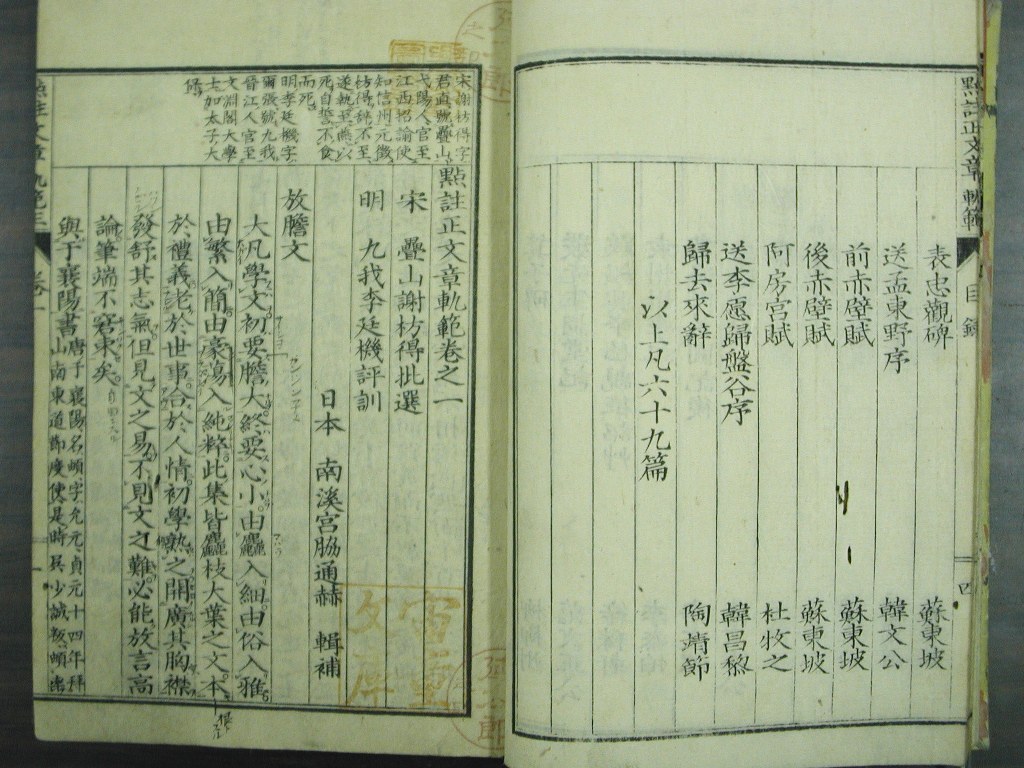 點註正文章軌範
目錄
四
表忠觀碑 蘇東坡
送孟東野序 韓文公
前赤壁賦 蘇東坡
後赤壁賦 蘇東坡
阿房宮賦 杜牧之
送李愿歸盤谷序 韓昌黎
歸去來辭 陶靖節
以上凡六十九篇
宋謝枋得字
君直號疊山
弋陽人官至
江西招諭使
知信州元徵
枋得辭不至
遂執至燕以
死自誓不食
而死
明李廷機字
爾張號九我
晉江人官至
文淵閣大學
士加太子太
保
點註正文章軌範卷之一
宋 疊山謝枋得批選
明 九我李廷機評訓
日本 南溪宮脇通赫 輯補
放膽文
大凡學文初要膽大終要心小由麤入細由俗入雅
由繁入簡由豪蕩入純粹此集皆麤枝大葉之文本
於禮義老於世事合於人情初學熟之開廣其胸襟
發舒其志氣但見文之易不則文之難必能放言高
論筆端不窘束矣
與于襄陽書 唐于襄陽名頔字允元貞元十四年拜
山南東道節度使是時吳少誠叛頔率